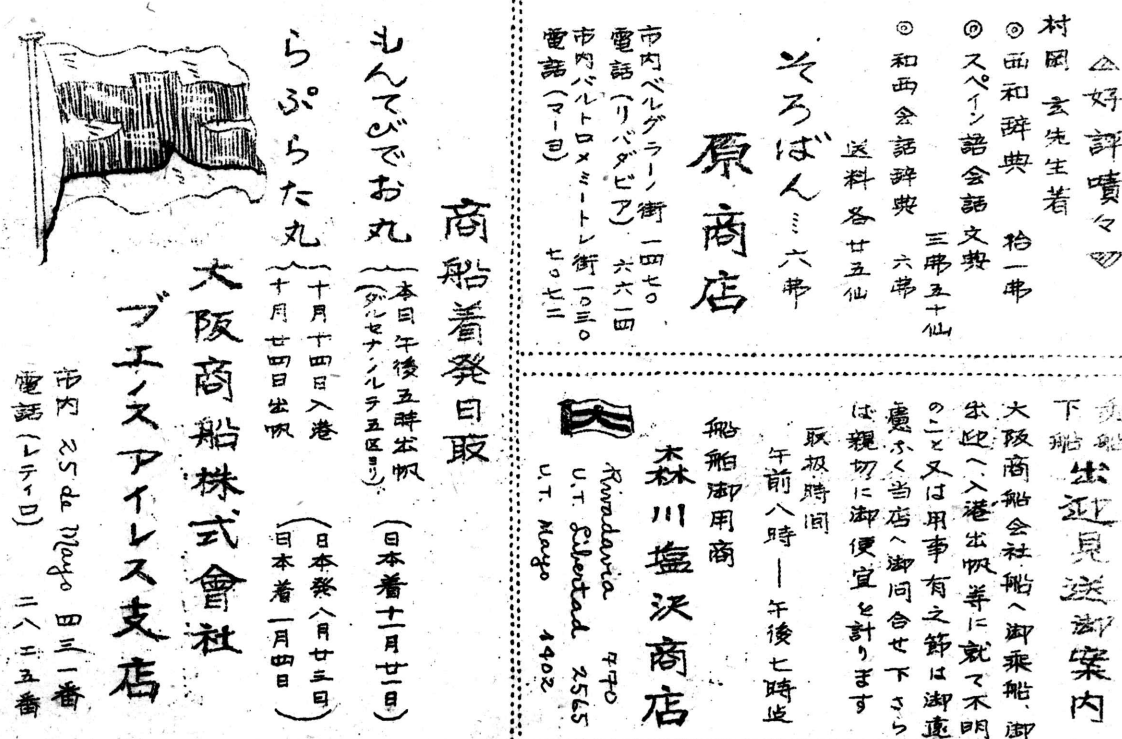 好評嘖々
村岡 玄先生著
◎ 西和辞典 拾一弗
◎ スペイン語会話文典
三弗五十仙
◎ 和西会話辞典 六弗
送料各廿五仙
そろばん…六弗
原商店
市内ベルグラーノ街一四七〇
電話(リバダビア) 六六一四
市内バルトロメミートレ街一〇三〇
電話(マーヨ) 七〇七二
乗船
下船
出迎見送御案内
大阪商船会社船へ御乗船、御
出迎へ入港出帆等に就て不明
のこと又は用事有之節は御遠
慮なく当店へ御問合せ下さら
ば親切に御便宜を計ります
取扱時間
午前八時―午後七時迄
船舶御用商
森川塩沢商店
Rivadavia 770
U.T. Libertad 2565
U.T. Mayo 4402
商船着発日取
もんてびでお丸
本日午後五時出帆
(ダルセナノルテ五区ヨリ)
(日本着十一月廿一日)
らぷらた丸
十月十四日入港
十月廿四日出帆
(日本発八月廿三日
日本着一月四日)
大阪商船株式會社
ブエノスアイレス支店
市内 25 de Mayo 四三一番
電話(レティロ) 二八二五番